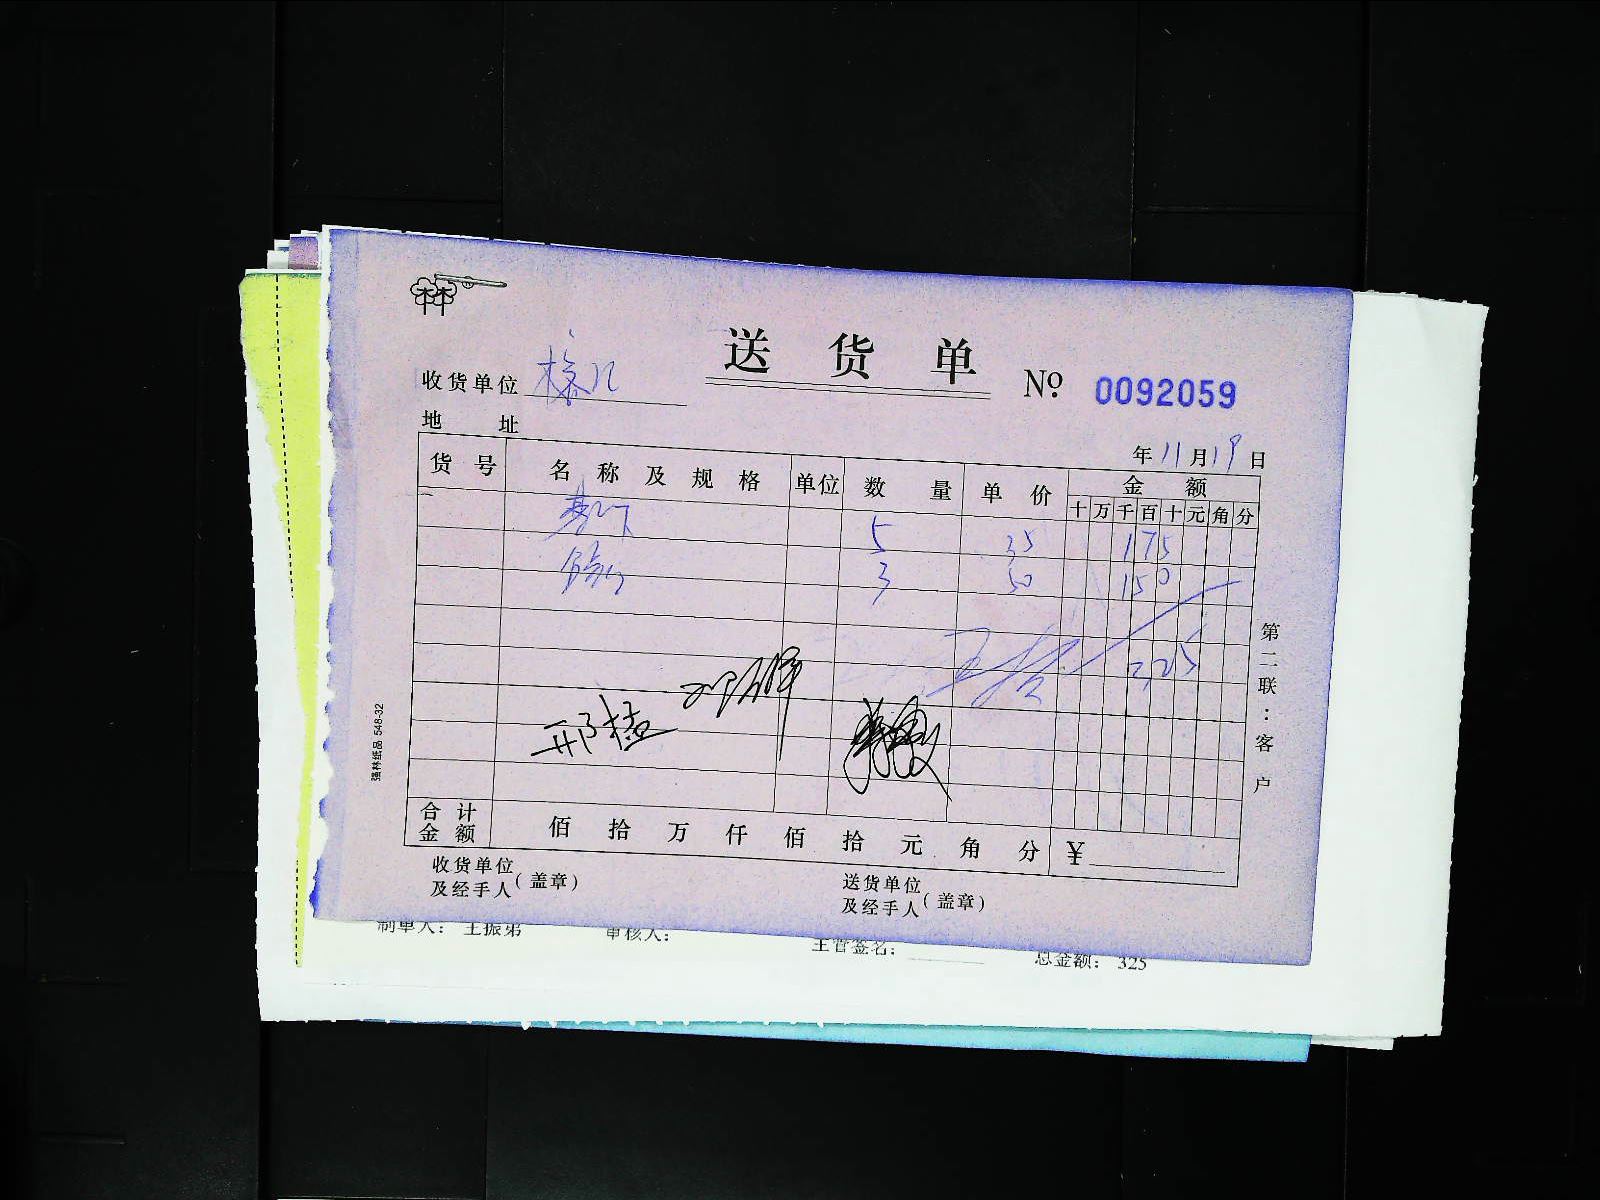 林
送货单 № 0092059
收货单位
地 址
年 11 月 19 日
货号 名称及规格 单位 数量 单价 金额
十 万 千 百 十 元 角 分
5 35 175
3 50 150
325
第二联：客户
强林纸品 548-32
合计金额 佰 拾 万 仟 佰 拾 元 角 分 ¥
收货单位 送货单位
及经手人(盖章) 及经手人(盖章)
制单人： 王振弟 审核人： 主管签名： 总金额： 325